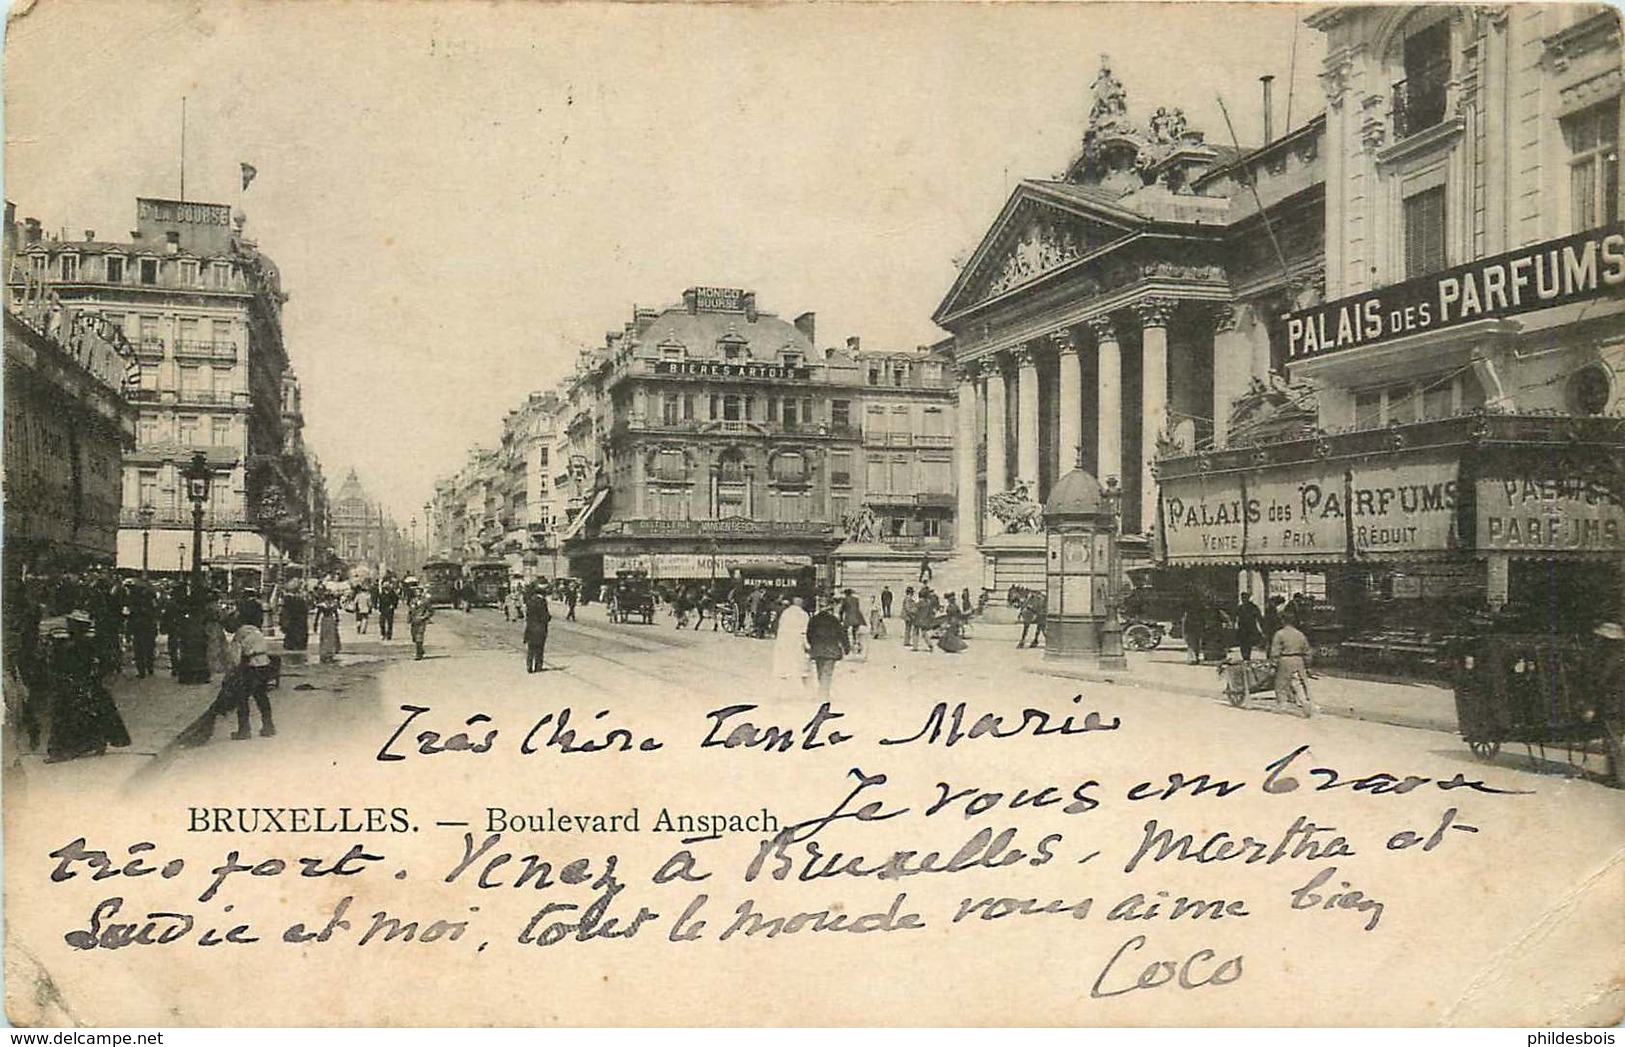 A LA BOURSE
MONICO
BOURSE
BIÈRES ARTOIS
PALAIS DES PARFUMS
PALAIS des PARFUMS
VENTE à PRIX RÉDUIT
PALAIS
PARFUMS
MAISON OLIN
Très Chère Tante Marie
BRUXELLES. — Boulevard Anspach.
Je vous embrasse
très fort. Venez à Bruxelles, Martha et
et moi, tout le monde vous aime bien
Coco
philedesbois